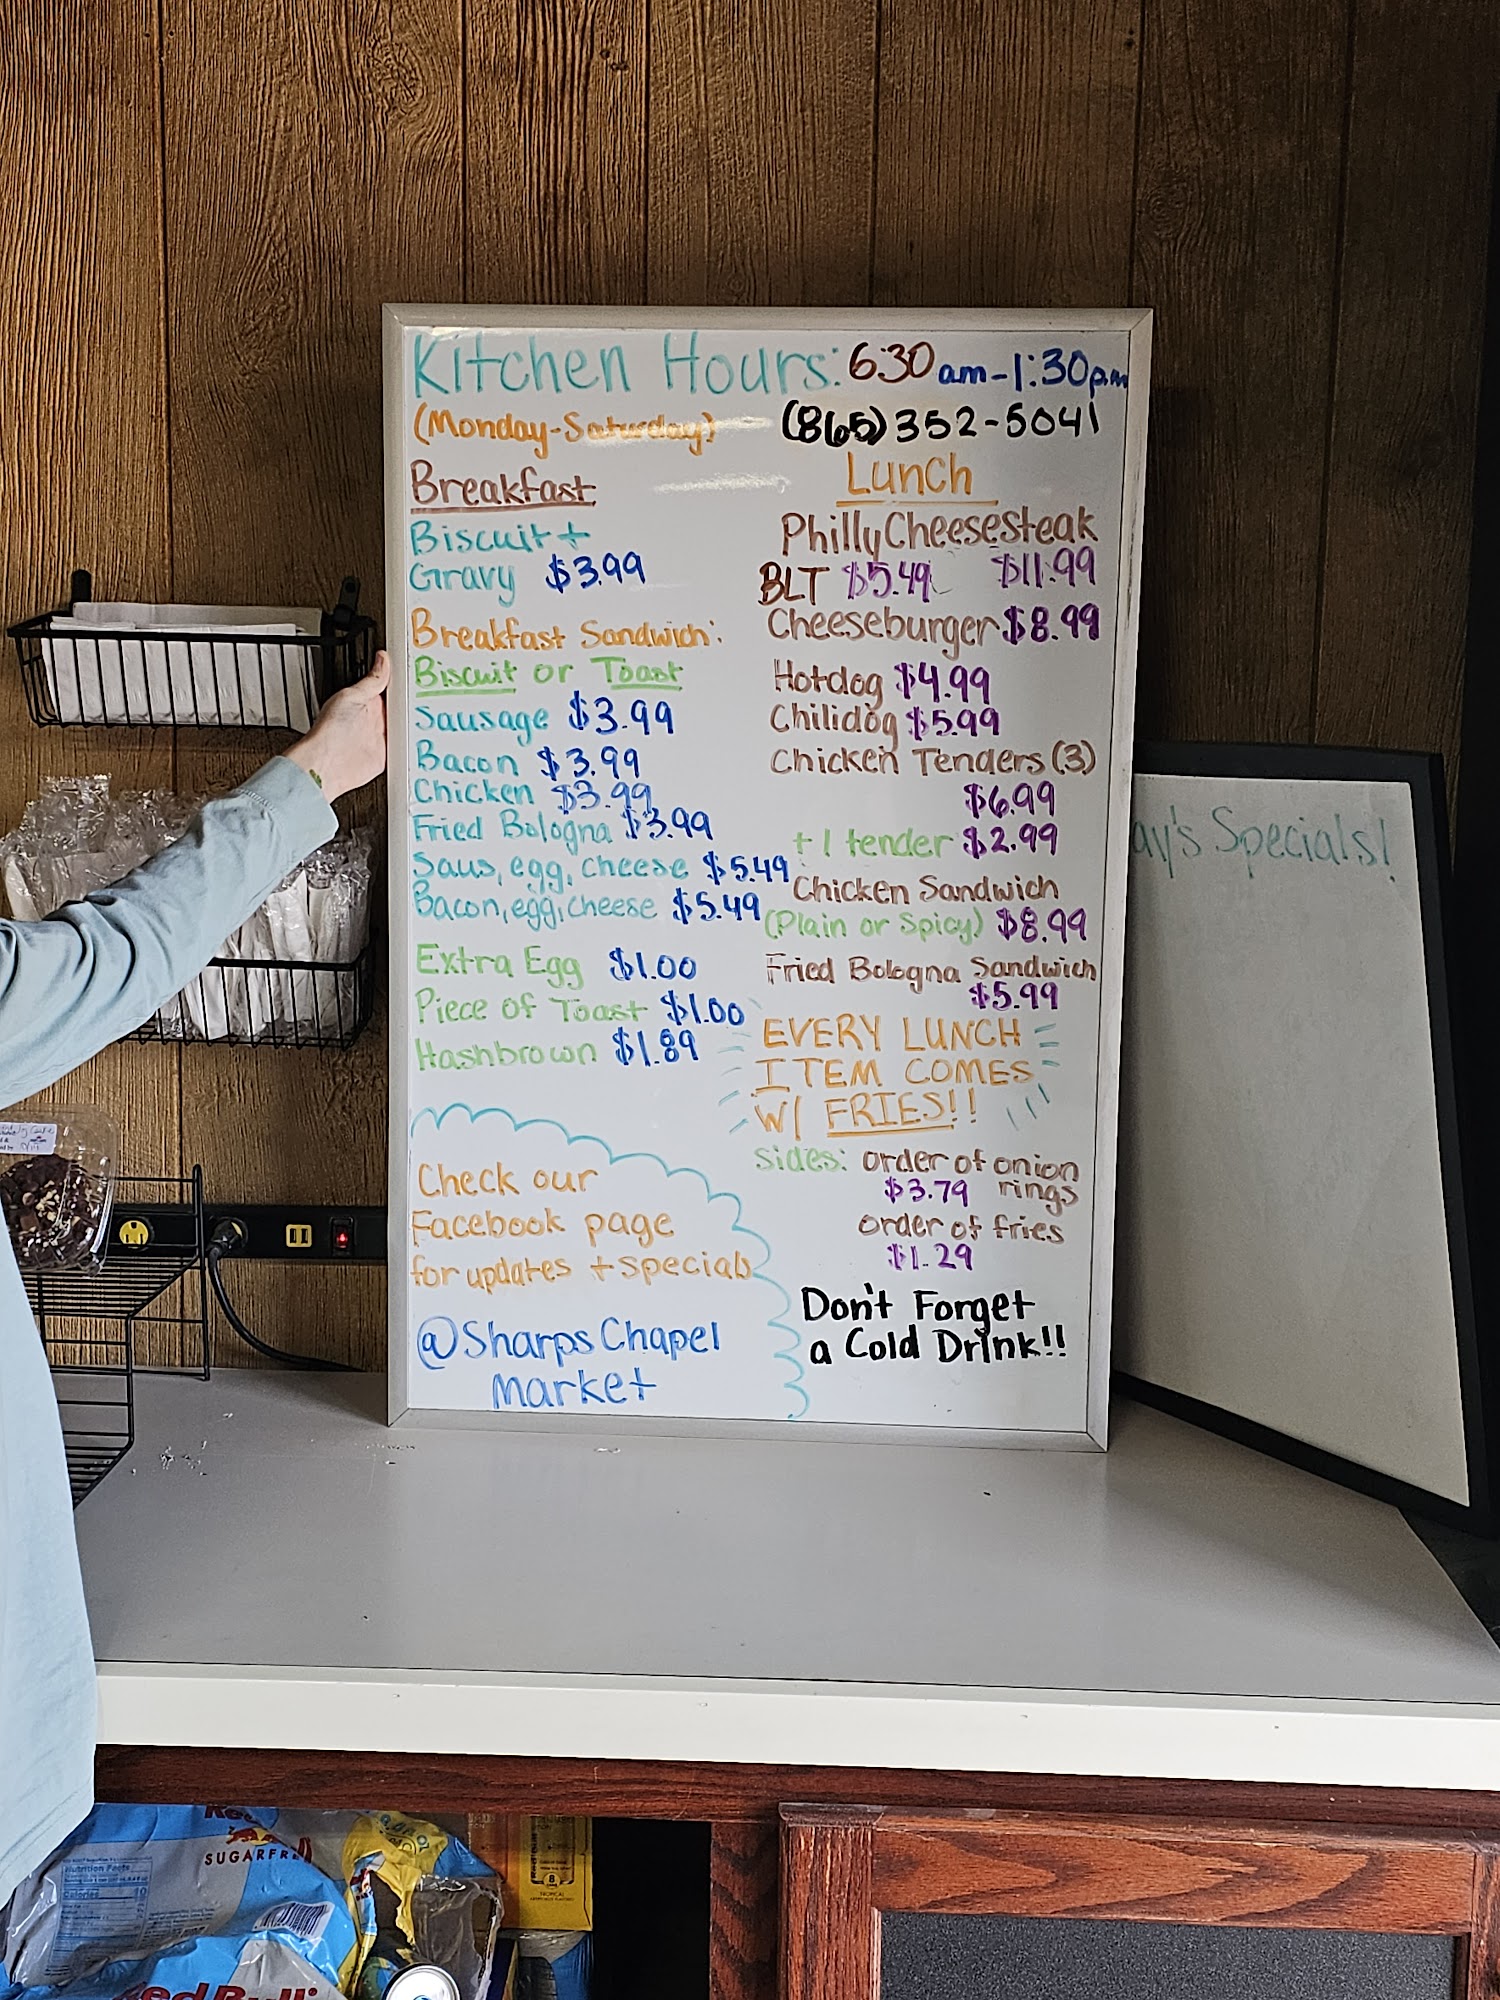 Kitchen Hours: 6:30 am-1:30p.m
(Monday-Saturday) (865)352-5041
Breakfast
Biscuit +
Gravy $3.99
Breakfast Sandwich:
Biscuit or Toast
Sausage $3.99
Bacon $3.99
Chicken $3.99
Fried Bologna $3.99
Saus, egg, cheese $5.49
Bacon, egg, cheese $5.49
Extra Egg $1.00
Piece of Toast $1.00
Hashbrown $1.89
Check our
Facebook page
for updates + specials
@Sharps Chapel
Market
Lunch
Philly Cheesesteak
$11.99
BLT $5.49
Cheeseburger $8.99
Hotdog $4.99
Chilidog $5.99
Chicken Tenders (3)
$6.99
+ 1 tender $2.99
Chicken Sandwich
(Plain or Spicy) $8.99
Fried Bologna Sandwich
$5.99
EVERY LUNCH
ITEM COMES
W/ FRIES!!
Sides: order of onion
rings
$3.79
order of fries
$1.29
Don't Forget
a Cold Drink!!
ay's Specials!
SUGARFREE
Nutrition Facts
Calories
Red Bull
TROPICAL
8